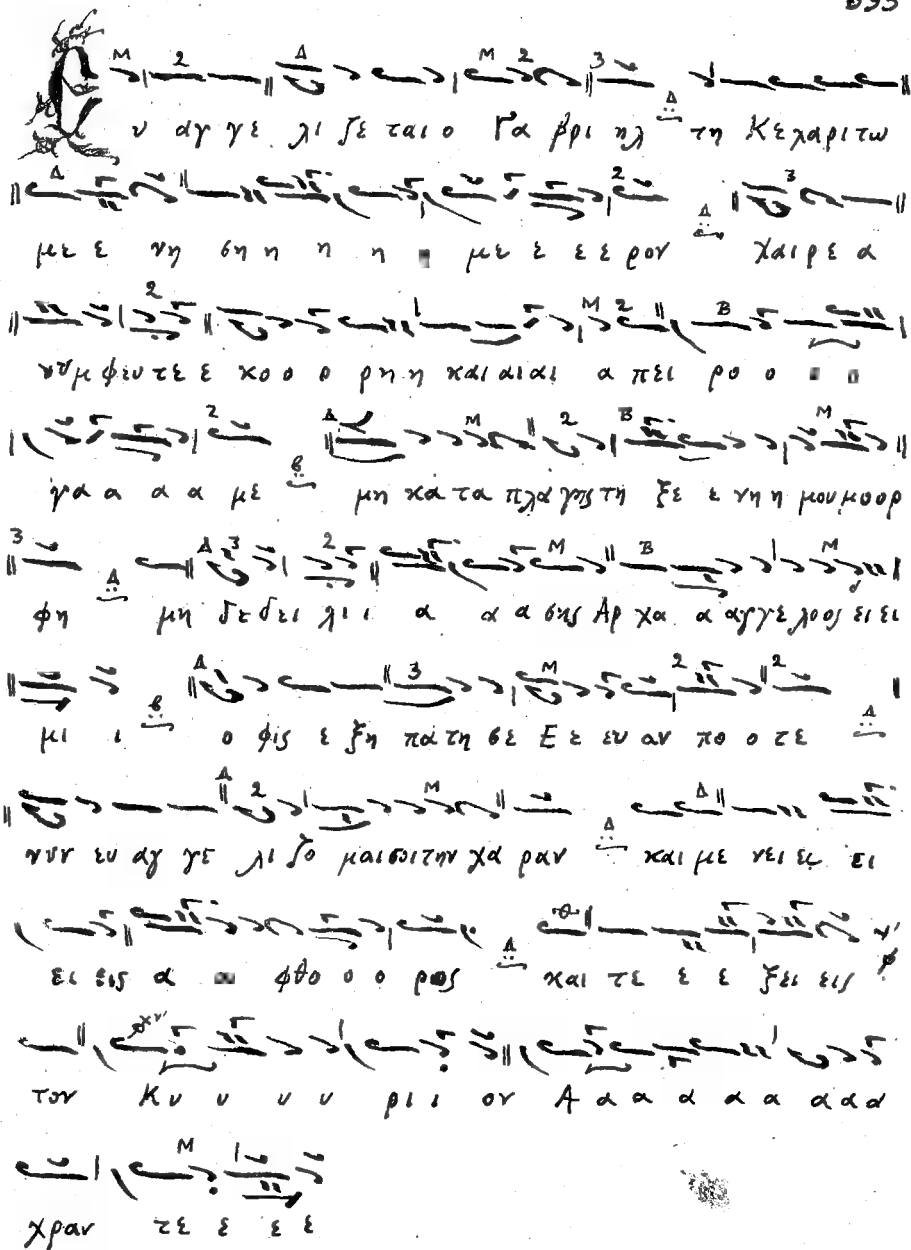 Ευ αγ γε λι ζε ται ο Γα βρι ηλ τη Κε χα ρι τω
με ε νη ση η η η με ε ε ε ρον χαι ρε α
νυμ φευ τε ε κο ο ο ρη η και αι αι α πει ρο ο
γα α α α με μη κα τα πλα γης τη ξε ε νη η μου μο ορ
φη μη δε δει λι ι α α α σης Αρ χα α αγ γε λο ος ει ει
μι ι ο φις ε ξη πα τη σε Ε ε ευ αν πο ο τε
νυν ευ αγ γε λι ζο μαι σοι την χα ραν και με νει εις ει
ει εις α φθο ο ο ρος και τε ε ε ξει εις
τον Κυ υ υ υ ρι ι ον Α α α α α α α α α
χραν τε ε ε ε